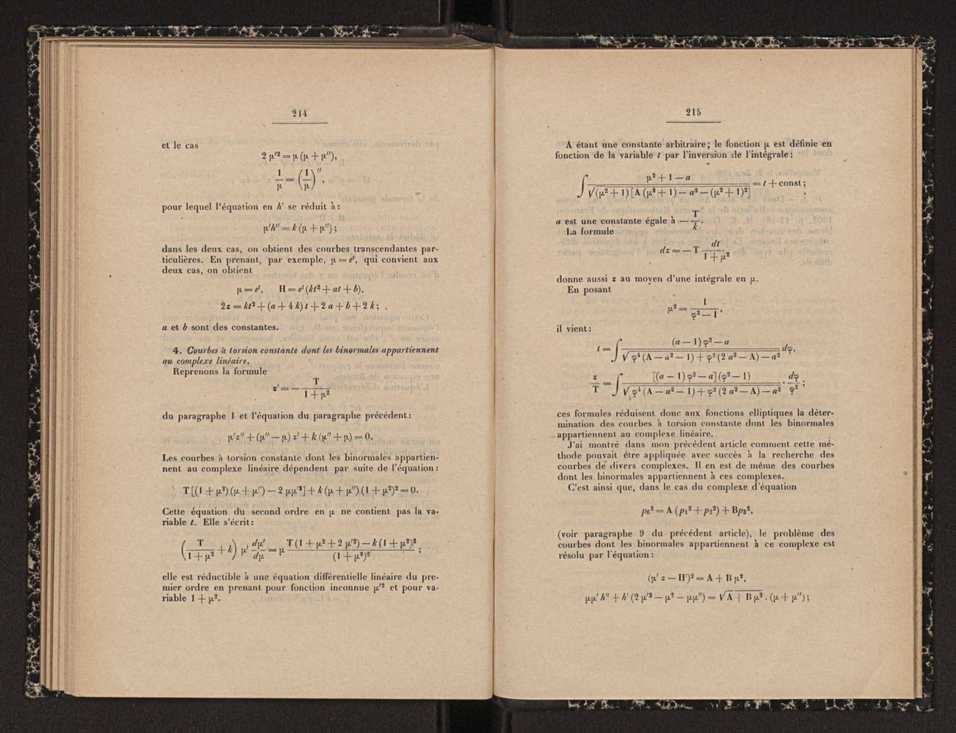 214
et le cas
2 μ'² = μ (μ + μ''),
1/μ = (1/μ)'',
pour lequel l'équation en h' se réduit à :
μ'h'' = k (μ + μ'') ;
dans les deux cas, on obtient des courbes transcendantes par-
ticulières. En prenant, par exemple, μ = eᵗ, qui convient aux
deux cas, on obtient
μ = eᵗ, H = eᵗ (kt² + at + b),
2z = kt² + (a + 4 k) t + 2 a + b + 2 k ;
a et b sont des constantes.
4. Courbes à torsion constante dont les binormales appartiennent
au complexe linéaire.
Reprenons la formule
z' = — T / (1 + μ²)
du paragraphe 1 et l'équation du paragraphe précédent :
μ'z'' + (μ'' — μ) z' + k (μ'' + μ) = 0.
Les courbes à torsion constante dont les binormales appartien-
nent au complexe linéaire dépendent par suite de l'équation :
T [(1 + μ²) (μ + μ'') — 2 μμ'²] + k (μ + μ'') (1 + μ²)² = 0.
Cette équation du second ordre en μ ne contient pas la va-
riable t. Elle s'écrit :
(T / (1 + μ²) + k) μ' dμ'/dμ = μ [T (1 + μ² + 2 μ'²) — k (1 + μ²)²] / (1 + μ²)² ;
elle est réductible à une équation différentielle linéaire du pre-
mier ordre en prenant pour fonction inconnue μ'² et pour va-
riable 1 + μ².
215
A étant une constante arbitraire ; le fonction μ est définie en
fonction de la variable t par l'inversion de l'intégrale :
∫ (μ² + 1 — a) / √((μ² + 1) [A (μ² + 1) — a² — (μ² + 1)²]) = t + const ;
a est une constante égale à — T/k.
La formule
dz = — T dt / (1 + μ²)
donne aussi z au moyen d'une intégrale en μ.
En posant
μ² = 1 / (φ² — 1),
il vient :
t = ∫ ((a — 1) φ² — a) / √(φ⁴ (A — a² — 1) + φ² (2 a² — A) — a²) dφ,
z/T = ∫ [(a — 1) φ² — a] (φ² — 1) / √(φ⁴ (A — a² — 1) + φ² (2 a² — A) — a²) · dφ/φ² ;
ces formules réduisent donc aux fonctions elliptiques la déter-
mination des courbes à torsion constante dont les binormales
appartiennent au complexe linéaire.
J'ai montré dans mon précédent article comment cette mé-
thode pouvait être appliquée avec succès à la recherche des
courbes de divers complexes. Il en est de même des courbes
dont les binormales appartiennent à ces complexes.
C'est ainsi que, dans le cas du complexe d'équation
p₆² = A (p₁² + p₂²) + Bp₃².
(voir paragraphe 9 du précédent article), le problème des
courbes dont les binormales appartiennent à ce complexe est
résolu par l'équation :
(μ' z — H')² = A + B μ².
μμ' h'' + h' (2 μ'² — μ² — μμ'') = √(A + B μ²) . (μ + μ'') ;